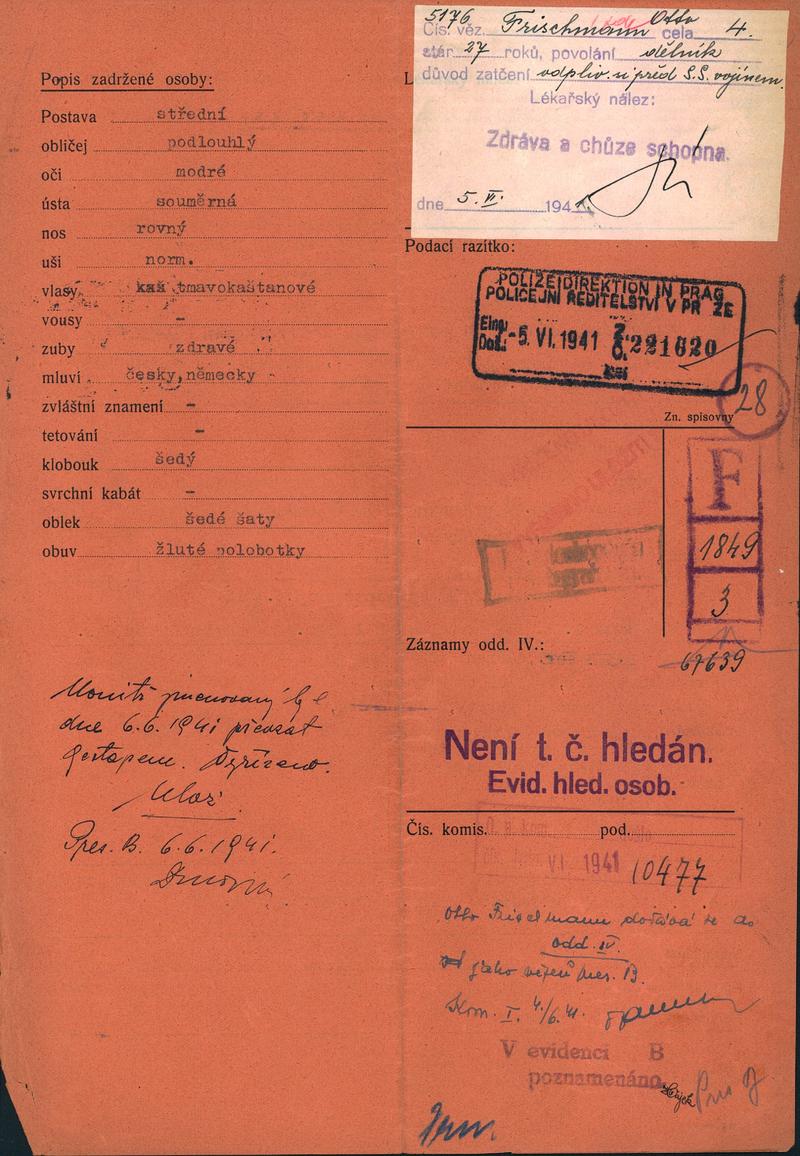 Popis zadržené osoby:
Postava střední
obličej podlouhlý
oči modré
ústa souměrná
nos rovný
uši norm.
vlasy kaš tmavokaštanové
vousy -
zuby zdravé
mluví česky, německy
zvláštní znamení -
tetování -
klobouk šedý
svrchní kabát -
oblek šedé šaty
obuv žluté polobotky
dne 6.6.1941 převzat
Gestapem. Vyřízeno.
Pres. B. 6.6.1941.
5176
Čís. věz. Frischmann Otto cela 4.
stár 27 roků, povolání dělník
důvod zatčení odpliv. si před S.S. vojínem.
Lékařský nález:
Zdráva a chůze schopna.
dne 5. VI. 1941
Podací razítko:
POLIZEIDIREKTION IN PRAG
POLICEJNÍ ŘEDITELSTVÍ V PRAZE
Eing.
Doš.: -5. VI. 1941 221620
Zn. spisovny
28
F
1849
3
67639
Záznamy odd. IV.:
Není t. č. hledán.
Evid. hled. osob.
Čís. komis. pod.
VI. 1941
10477
Otto Frischmann dodává se do
odd. IV.
Kom. I. 4/6. 41.
V evidenci B
poznamenáno